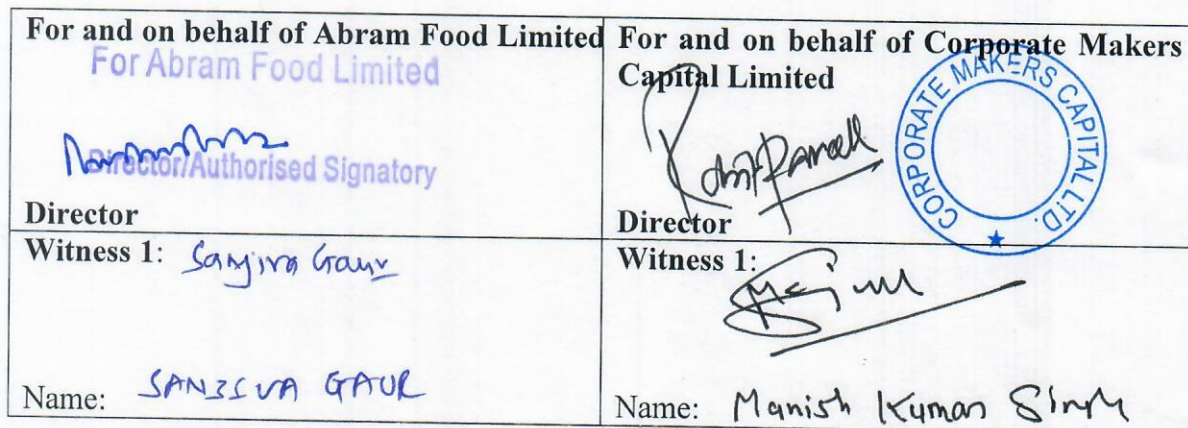 For and on behalf of Abram Food Limited
For Abram Food Limited
Director/Authorised Signatory
Director
For and on behalf of Corporate Makers
Capital Limited
CORPORATE MAKERS CAPITAL LTD.
Director
Witness 1: Sanjiva Gaur
Name: SANJIVA GAUR
Witness 1:
Name: Manish Kumar Singh